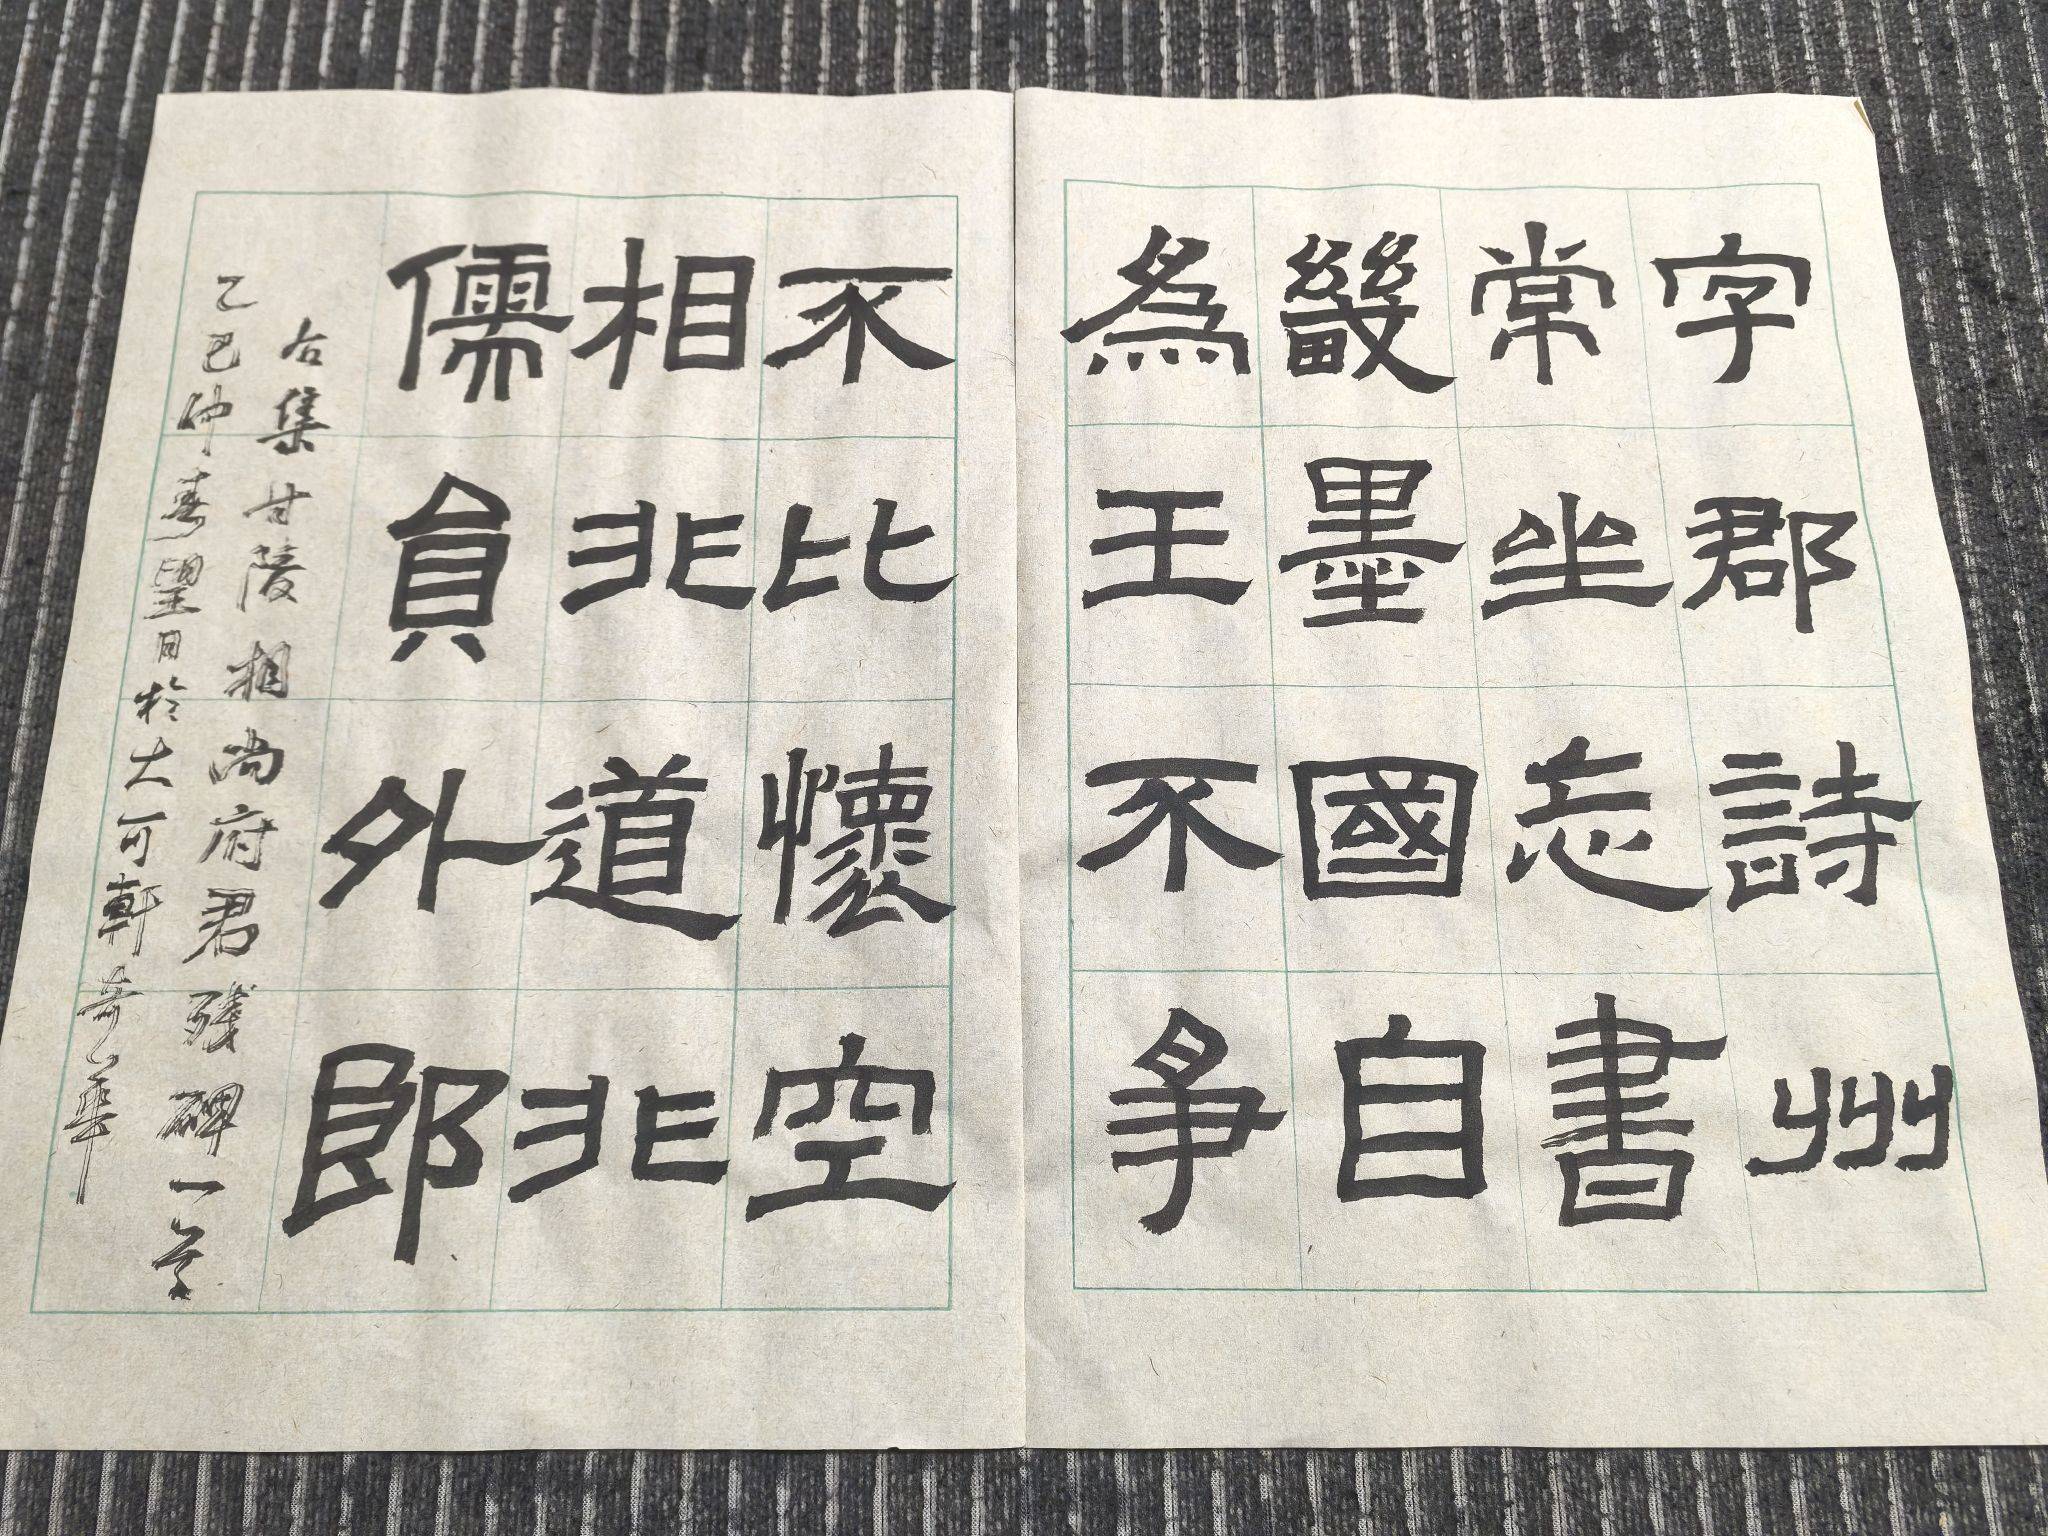 字郡詩州
常坐忘書
畿墨國自
為王不爭
不比懷空
相非道非
儒員外郎
右集甘陵相尚府君殘碑一
乙巳仲春望日於大可軒奇華